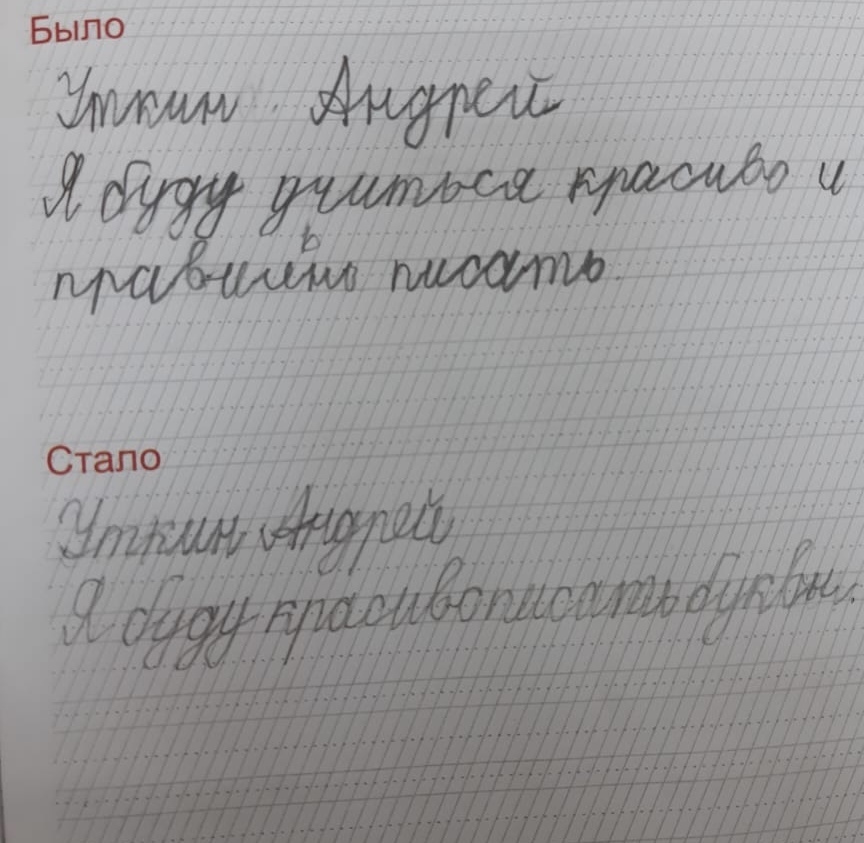 Было
Уткин Андрей
Я буду учиться красиво и
правильно писать.
Стало
Уткин Андрей
Я буду красиво писать буквы.